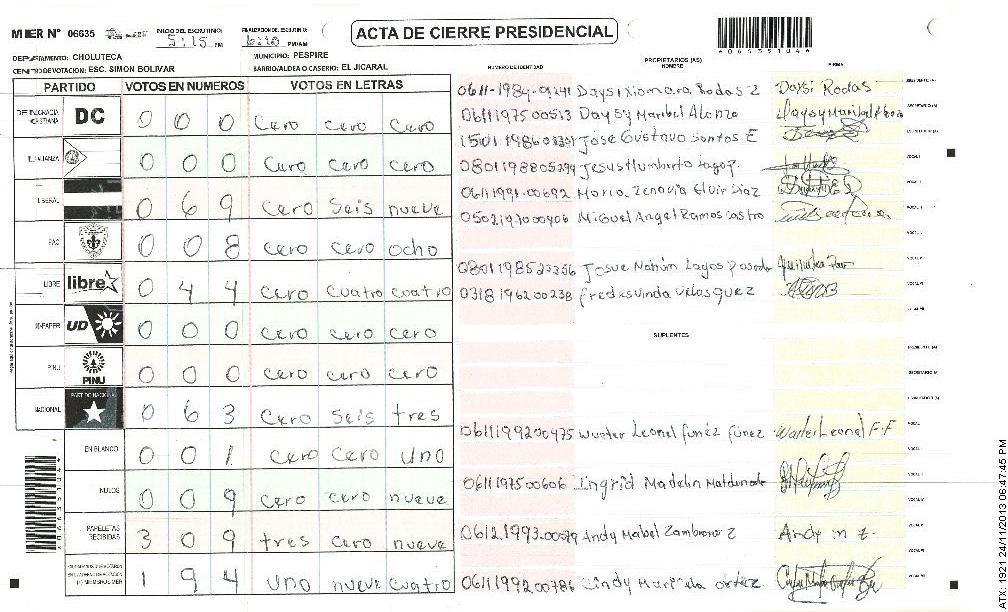 MER N° 06635
INICIO DEL ESCRUTINIO: 5:15 PM
FINALIZACION DE ESCRUTINIO: 6:10 PM/AM
ACTA DE CIERRE PRESIDENCIAL
DEPARTAMENTO: CHOLUTECA
MUNICIPIO: PESPIRE
CENTRO DE VOTACION: ESC. SIMON BOLIVAR
BARRIO/ALDEA O CASERIO: EL JICARAL
PARTIDO VOTOS EN NUMEROS VOTOS EN LETRAS
DEMOCRACIA CRISTIANA DC 0 0 0 Cero cero cero
ALIANZA 0 0 0 Cero cero cero
LIBERAL 0 6 9 cero Seis nueve
PAC 0 0 8 cero cero ocho
LIBRE libre 0 4 4 cero cuatro cuatro
UD 0 0 0 cero cero cero
PINU PINU 0 0 0 cero cero cero
NACIONAL PARTIDO NACIONAL 0 6 3 cero Seis tres
EN BLANCO 0 0 1 cero cero uno
NULOS 0 0 9 cero cero nueve
PAPELETAS RECIBIDAS 3 0 9 tres cero nueve
1 9 4 uno nueve cuatro
NUMERO DE IDENTIDAD
PROPIETARIOS (AS)
NOMBRE
FIRMA
Daysi Xiomara Rodas Z Daysi Rodas
0611197500513 Daysy Maribel Alonzo
Jose Gustavo Santos E
0801198805294 Jesus Humberto Lagos
0611-1991-00692 Maria Zenovia Elvir Diaz
0502197000406 Miguel Angel Ramos Castro
0801198523356 Josue Nahún Lagos
0318196200238 Fredesvinda Velasquez
SUPLENTES
0611199200475 Leonel Funez Funez Walter Leonel F.F
0611197500606 Ingrid Madelin Maldonado
Andy Mabel Zambrano Z Andy M Z.
0611199200786 Cindy
ATX-1921 24/11/2013 06:47:45 PM